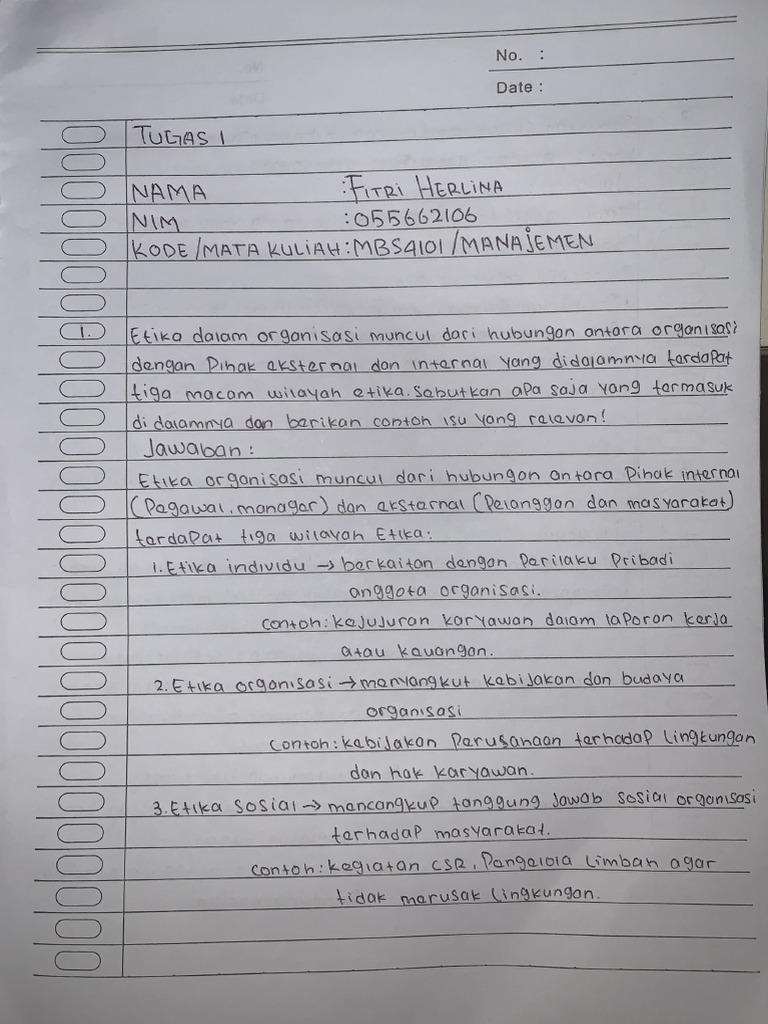 No. :
Date :
TUGAS 1
NAMA : FITRI HERLINA
NIM : 055662106
KODE/MATA KULIAH : MBS4101/MANAJEMEN
1. Etika dalam organisasi muncul dari hubungan antara organisasi
dengan Pihak eksternal dan internal yang didalamnya terdapat
tiga macam wilayah etika. Sebutkan apa saja yang termasuk
di dalamnya dan berikan contoh isu yang relevan!
Jawaban :
Etika organisasi muncul dari hubungan antara Pihak internal
(Pegawai, manager) dan eksternal (Pelanggan dan masyarakat)
terdapat tiga wilayah Etika:
1. Etika individu → berkaitan dengan Perilaku Pribadi
anggota organisasi.
contoh: kejujuran karyawan dalam laporan kerja
atau keuangan.
2. Etika organisasi → menyangkut kebijakan dan budaya
organisasi
contoh: kebijakan Perusahaan terhadap lingkungan
dan hak karyawan.
3. Etika Sosial → mencangkup tanggung Jawab sosial organisasi
terhadap masyarakat.
contoh: kegiatan CSR, Pengelola Limbah agar
tidak merusak lingkungan.